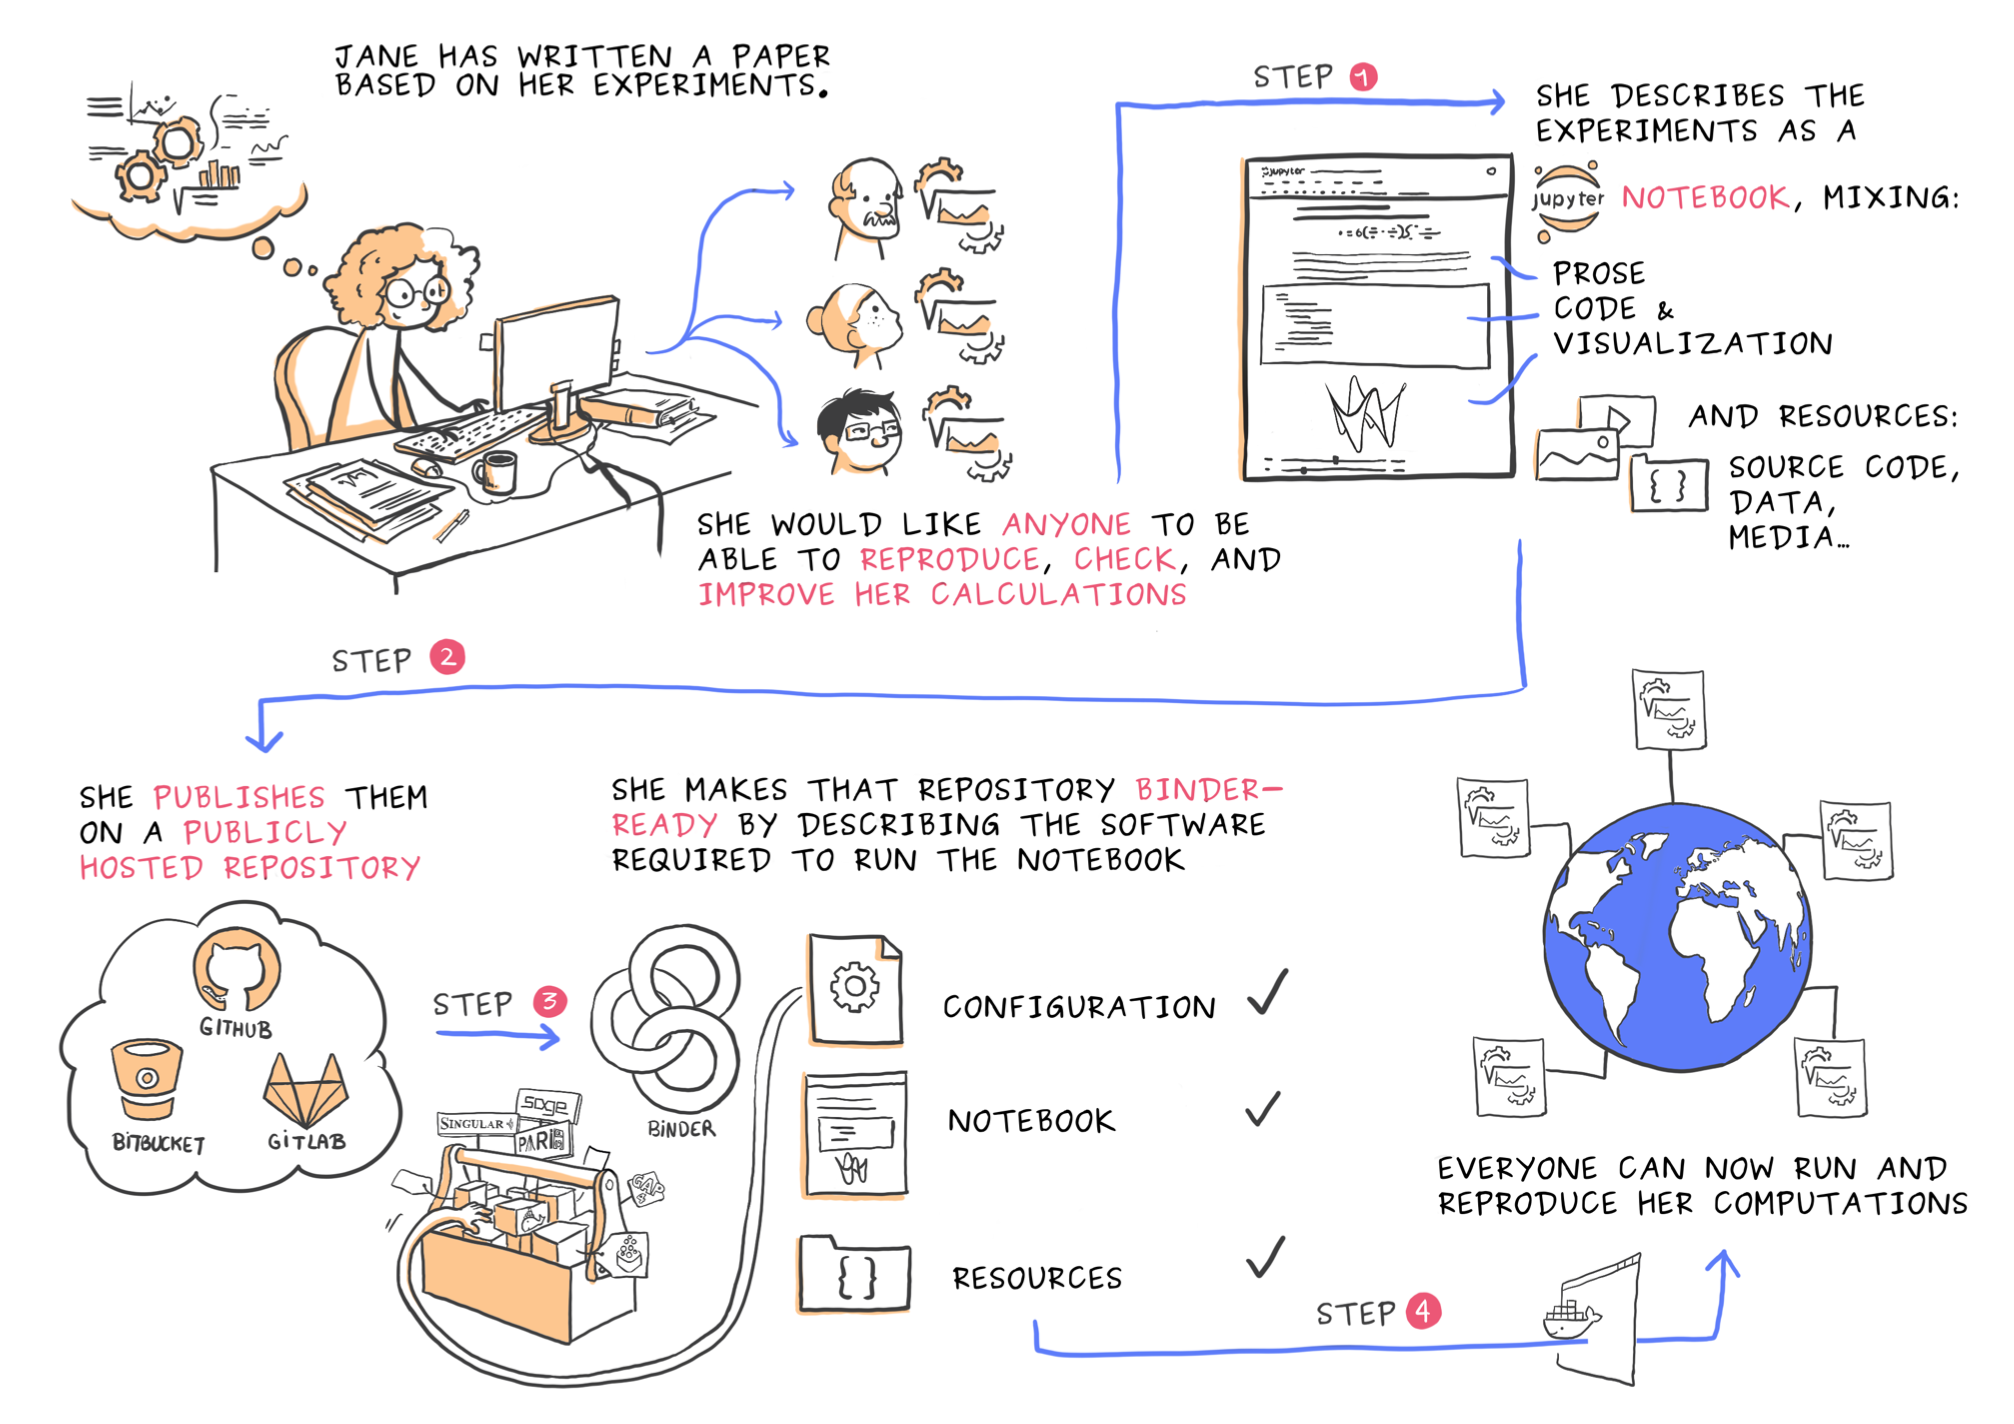 JANE HAS WRITTEN A PAPER
BASED ON HER EXPERIMENTS.
SHE WOULD LIKE ANYONE TO BE
ABLE TO REPRODUCE, CHECK, AND
IMPROVE HER CALCULATIONS
STEP 1
SHE DESCRIBES THE
EXPERIMENTS AS A
jupyter NOTEBOOK, MIXING:
jupyter
PROSE
CODE &
VISUALIZATION
AND RESOURCES:
SOURCE CODE,
DATA,
MEDIA...
{ }
STEP 2
SHE PUBLISHES THEM
ON A PUBLICLY
HOSTED REPOSITORY
GITHUB
BITBUCKET
GITLAB
STEP 3
SHE MAKES THAT REPOSITORY BINDER-
READY BY DESCRIBING THE SOFTWARE
REQUIRED TO RUN THE NOTEBOOK
BINDER
sage
SINGULAR
PARI
GAP
CONFIGURATION ✓
NOTEBOOK ✓
{ }
RESOURCES ✓
STEP 4
EVERYONE CAN NOW RUN AND
REPRODUCE HER COMPUTATIONS